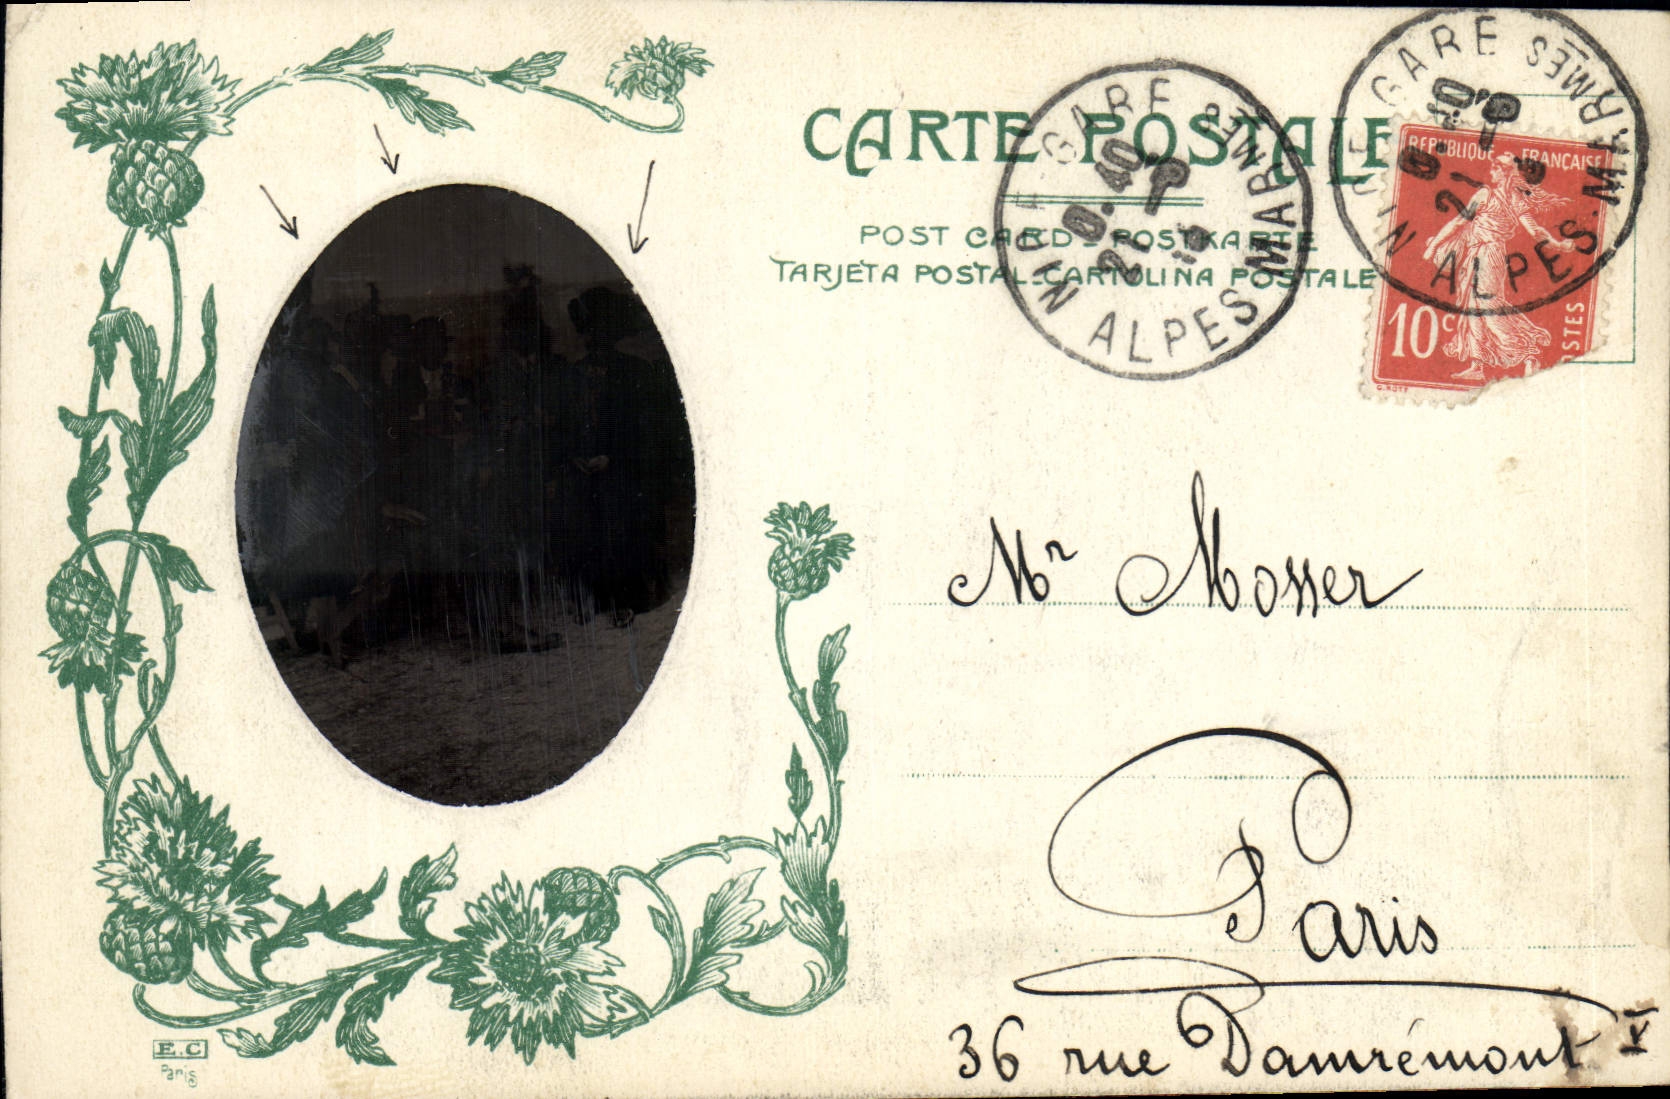 CARTE POSTALE
POST CARD - POSTKARTE
TARJETA POSTAL - CARTOLINA POSTALE
NICE GARE
ALPES-MARMES
NICE GARE
ALPES-MARMES
REPUBLIQUE FRANÇAISE
10c
POSTES
Mr Mosser
Paris
36 rue Damrémont
E.C
Paris